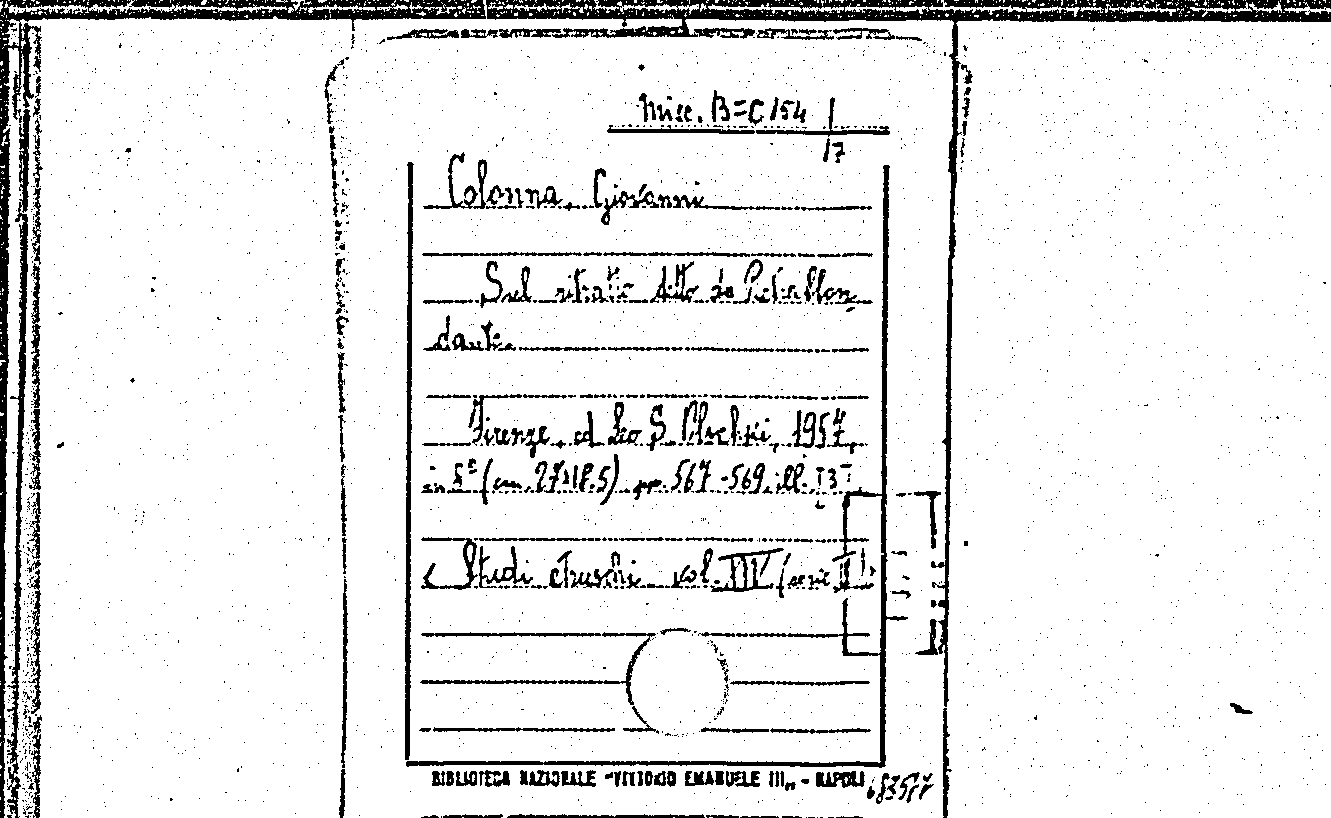 Misc. B=C 154
17
Colonna, Giovanni
Sul ritratto detto da Pietrabbon
dante.
Firenze, ed Leo S. Olschki, 1957,
in 8° (cm. 27x18.5) pp. 567-569, ill. [3]
« Studi etruschi. vol. (serie II)»
BIBLIOTECA NAZIONALE "VITTORIO EMANUELE III" - NAPOLI